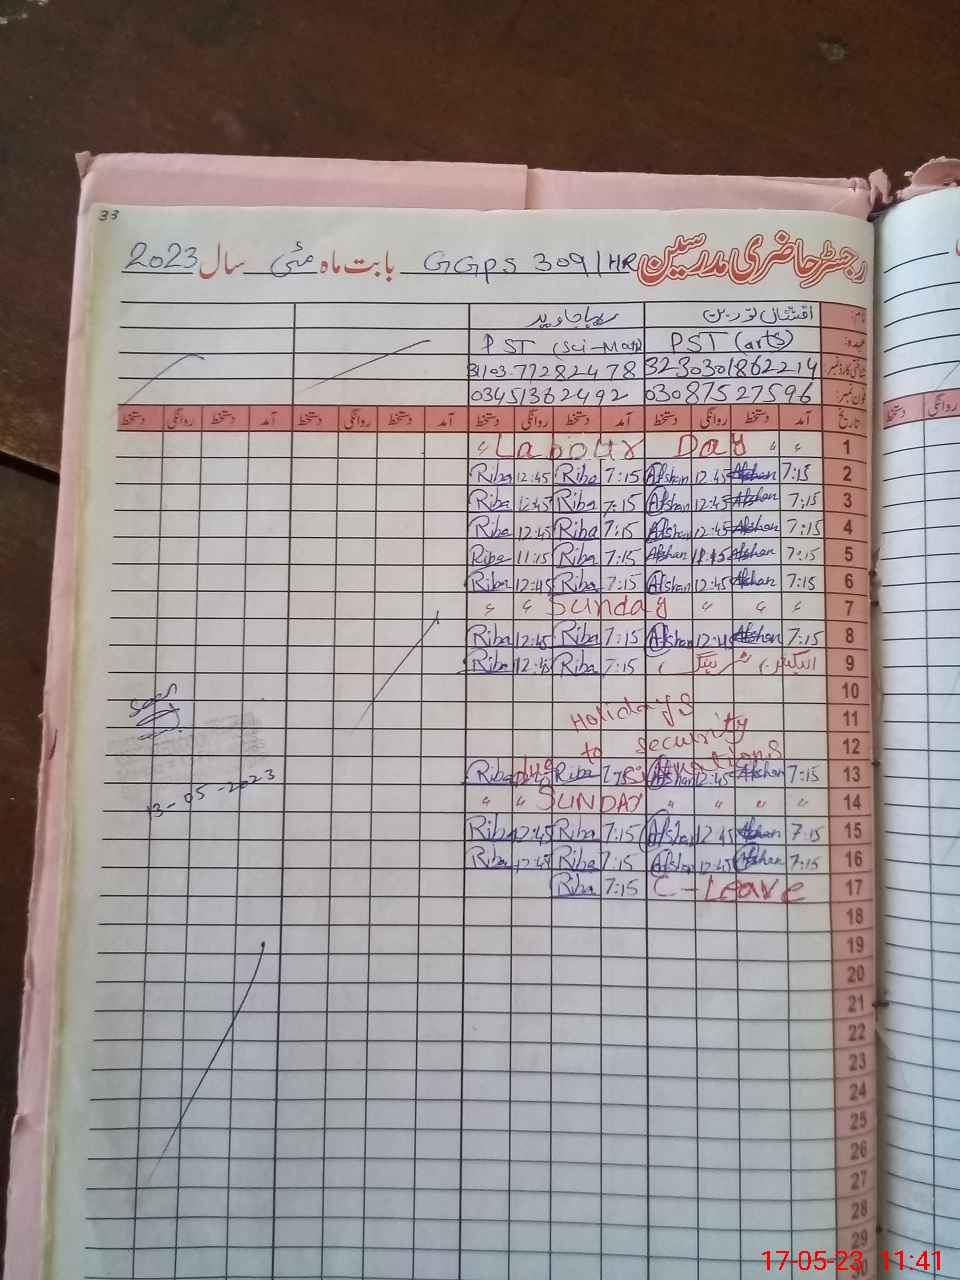 33
رجسٹر حاضری مدرسین GGPS 309/HR بابت ماہ مئی سال 2023
نام: افشاں نورین
عہدہ: PST (arts) PST (Sci-Math)
شناختی کارڈ نمبر 3230301862214 31103.77282478
فون نمبر: 03087527596 03451362492
تاریخ آمد دستخط روانگی دستخط آمد دستخط روانگی دستخط آمد دستخط روانگی دستخط آمد دستخط روانگی دستخط
1 " " Labour Day "
2 7:15 Afshan 12:45 Afshan 7:15 Riba 12:45 Riba
3 7:15 Afshan 12:45 Afshan 7:15 Riba 12:45 Riba
4 7:15 Afshan 12:45 Afshan 7:15 Riba 12:45 Riba
5 7:15 Afshan 11:15 Afshan 7:15 Riba 11:15 Riba
6 7:15 Afshan 12:45 Afshan 7:15 Riba 12:45 Riba
7 " " " Sunday " "
8 7:15 Afshan 12:45 Afshan 7:15 Riba 12:45 Riba
9 7:15 Riba 12:45 Riba
10
11 Holidays
12 due to security
situations
13 7:15 Afshan 12:45 Afshan 7:15 Riba 12:45 Riba
14 " " " " SUNDAY " "
15 7:15 Afshan 12:45 Afshan 7:15 Riba 12:45 Riba
16 7:15 Afshan 12:45 Afshan 7:15 Riba 12:45 Riba
17 C-Leave 7:15 Riba
18
19
20
21
22
23
24
25
26
27
28
29
30
Seen
13-05-2023
دستخط روانگی
17-05-23 11:41